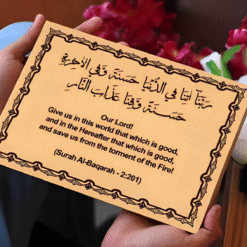 رَبَّنَا اٰتِنَا فِي الدُّنْيَا حَسَنَةً وَّفِي الْاٰخِرَةِ
حَسَنَةً وَّقِنَا عَذَابَ النَّارِ
Our Lord!
Give us in this world that which is good,
and in the Hereafter that which is good,
and save us from the torment of the Fire!
(Surah Al-Baqarah - 2:201)